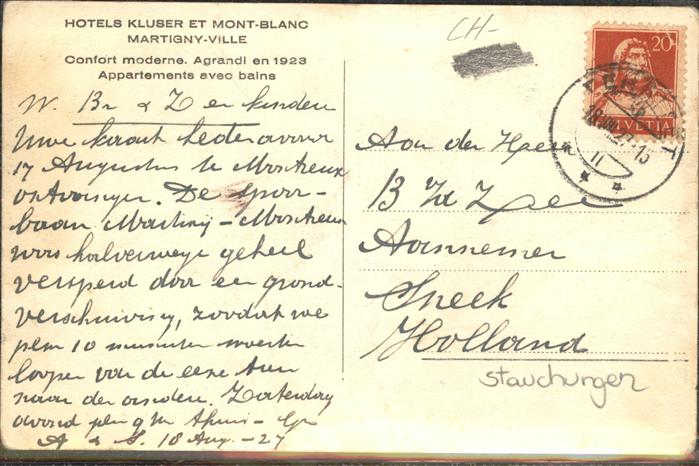 HOTELS KLUSER ET MONT-BLANC
MARTIGNY-VILLE
Confort moderne. Agrandi en 1923
Appartements avec bains
W. Br & Z en kinderen
Uwe kaart hedenavond
17 Augustus te Morcheux
ontvangen. De spoor-
baan Martiny - Morcheux
was halverwege geheel
versperd door een grond-
verschuiving, zoodat we
plm 10 minuten moesten
loopen van de eene trein
naar de andere. Zaterdag
avond plm 9 u thuis - Gr
A & S. 18 Aug. - 27
CH-
20
HELVETIA
Aan den Heer
B Zee
Aannemer
Sneek
Holland
stauchungen